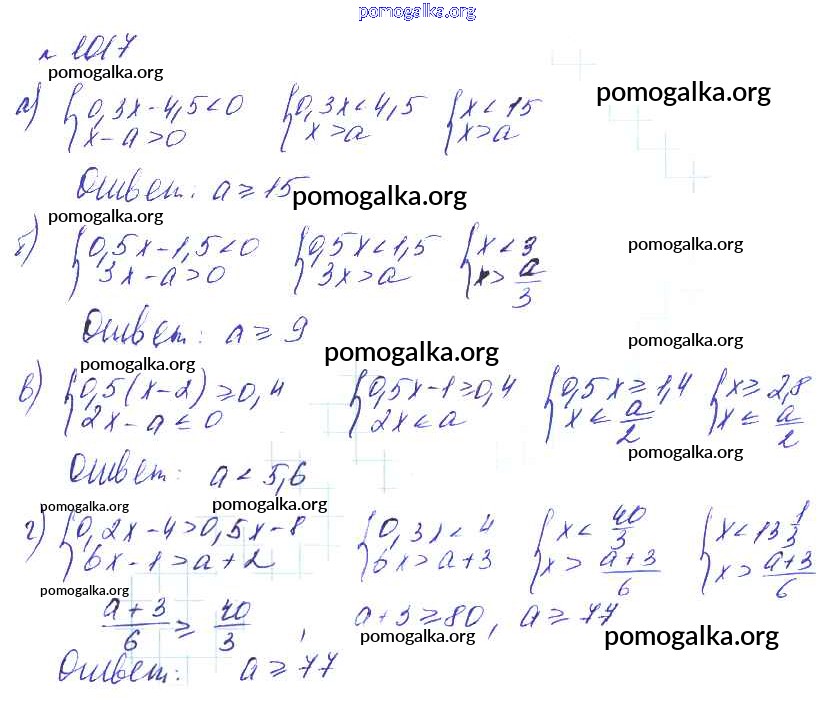 pomogalka.org
№ 1017
pomogalka.org
а) {0,3x - 4,5 < 0 {0,3x < 4,5 {x < 15 pomogalka.org
x - a > 0 x > a x > a
Ответ: a ≥ 15 pomogalka.org
pomogalka.org
б) {0,5x - 1,5 < 0 {0,5x < 1,5 {x < 3 pomogalka.org
3x - a > 0 3x > a x > a/3
Ответ: a ≥ 9 pomogalka.org
pomogalka.org pomogalka.org
в) {0,5(x - 2) ≥ 0,4 {0,5x - 1 ≥ 0,4 {0,5x ≥ 1,4 {x ≥ 2,8
2x - a ≤ 0 2x ≤ a x ≤ a/2 x ≤ a/2
pomogalka.org
Ответ: a < 5,6
pomogalka.org pomogalka.org
г) {0,2x - 4 > 0,5x - 8 {0,3x < 4 {x < 40/3 {x < 13 1/3
6x - 1 > a + 2 6x > a + 3 x > a + 3/6 x > a + 3/6
pomogalka.org
a + 3/6 ≥ 40/3, a + 3 ≥ 80, a ≥ 77
pomogalka.org pomogalka.org
Ответ: a ≥ 77